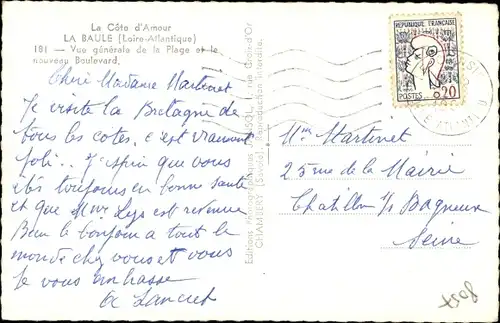 La Côte d'Amour
LA BAULE (Loire-Atlantique)
181 — Vue générale de la Plage et le
nouveau Boulevard.
Chère Madame Martinet
Je visite la Bretagne de
tous les cotes, c'est vraiment
joli... J'espère que vous
êtes toujours en bonne santé
et que Mme Lys est revenue
Bien le bonjour a tout le
monde chez vous et vous
Je vous embrasse
Lancret
CHAMBERY (Savoie)
Reproduction interdite.
REPUBLIQUE FRANÇAISE
POSTES 0,20
Mme Martinet
25 rue de la Mairie
Chatillon s/s Bagneux
Seine
8057